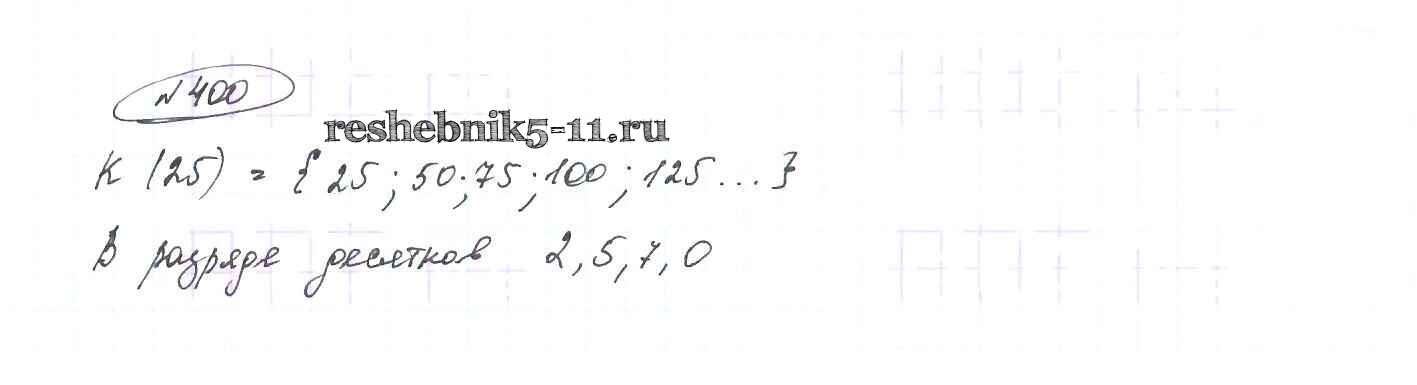 №400
reshebnik5-11.ru
К (25) = {25; 50; 75; 100; 125...}
В разряде десятков 2, 5, 7, 0